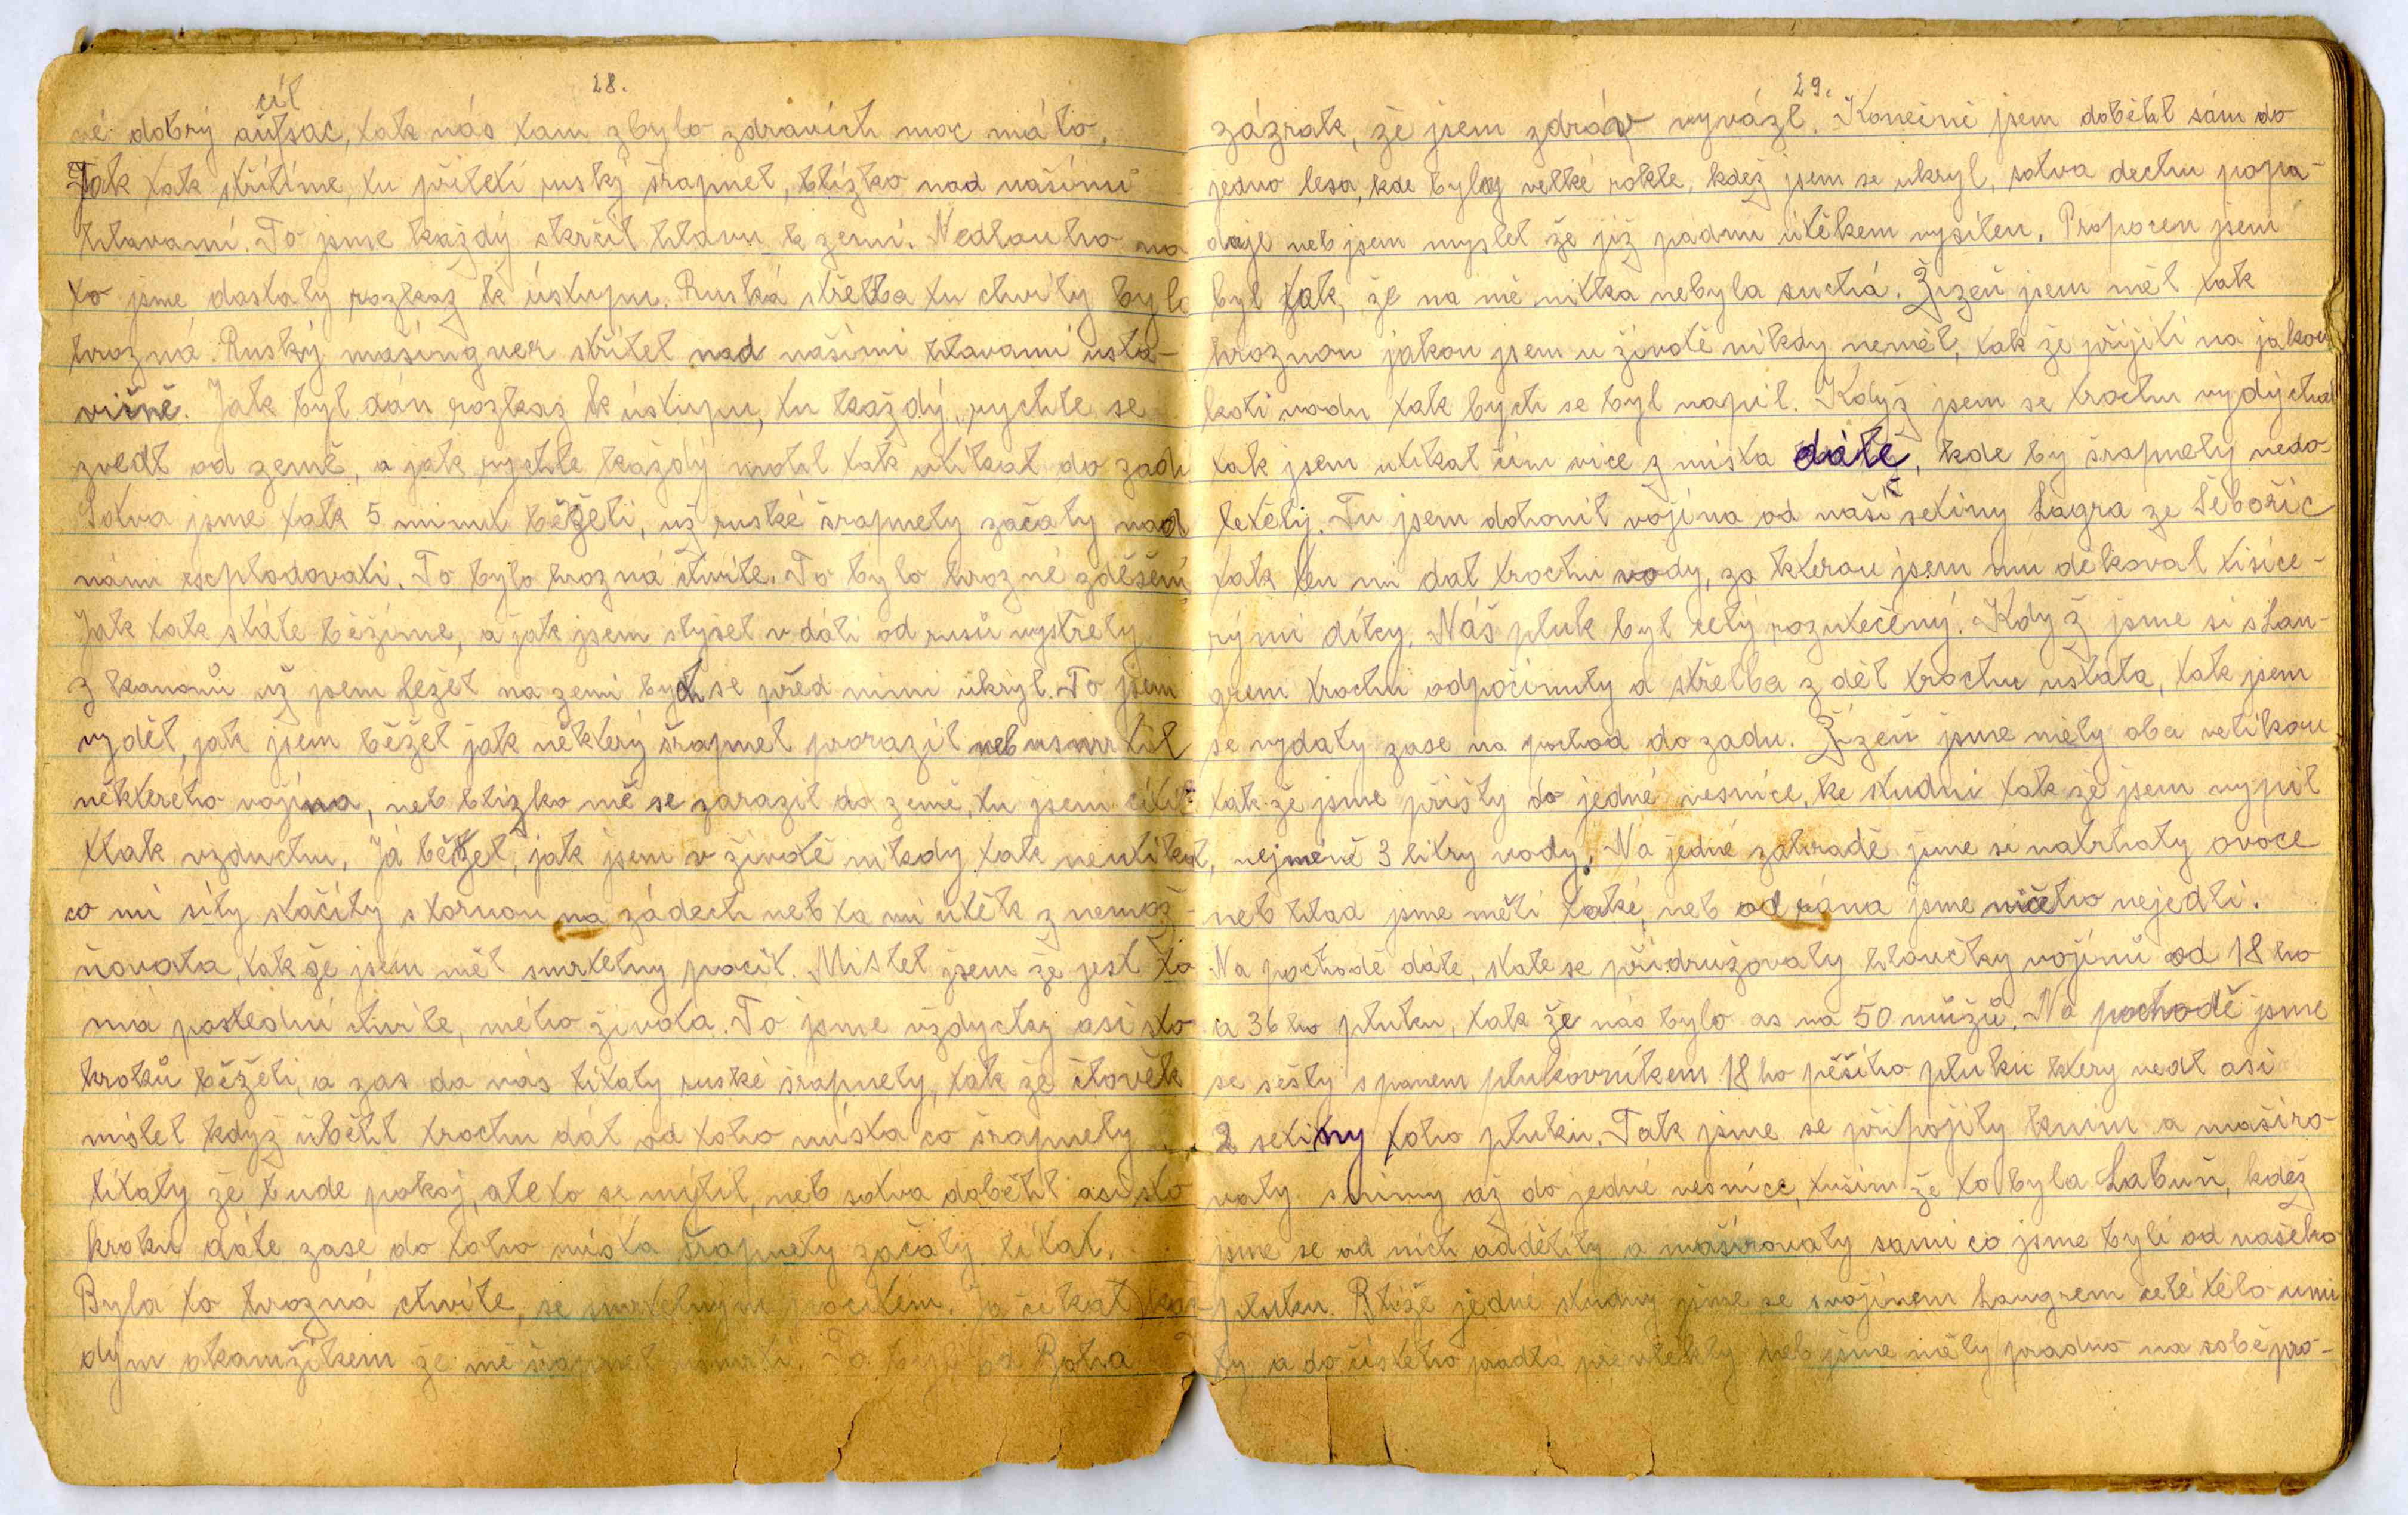 28.
cíl
né dobrý aufsac, tak nás tam zbylo zdravích moc málo.
Jak tak střílíme, tu přiletí ruský šrapnel, blízko nad našimi
hlavami. To jsme každý skrčil hlavu k zemi. Nedlouho na
to jsme dostaly rozkaz k ústupu. Ruská střelba tu chvíly byla
hrozná. Ruský mašingver střílel nad našimi hlavami usta-
vičně. Jak byl dán rozkaz k ústupu, tu každý, rychle se
zvedl od země, a jak rychle každý mohl tak utíkal do zadu
Sotva jsme tak 5 minut běželi, už ruské šrapnely začaly nad
námi esplodovati. To bylo hrozná chvíle. To bylo hrozné zděšení
Jak tak stále běžíme, a jak jsem slyšel v dáli od rusů výstřely
z kanonů už jsem ležel na zemi bych se před nimi ukryl. To jsem
vyděl, jak jsem běžel jak některý šrapnel porazil neb usmrtil
některého vojína, neb blízko mě se zarazil do země, tu jsem cítil
tlak vzduchu, Já běžel, jak jsem v životě nikdy tak neutíkal,
co mi síly stačily s tornou na zádech neb ta mi útěk znemož-
ňovala, tak že jsem měl smrtelny pocit. Mislel jsem že jest to
má poslední chvíle, mého života. To jsme vždycky asi sto
kroků běželi, a zas do nás lítaly ruské šrapnely, tak že člověk
mislel když uběhl trochu dál od toho místa co šrapnely
lítaly že bude pokoj, ale to se mýlil, neb sotva doběhl asi sto
kroku dále zase do toho místa šrapnely začaly lítat.
Byla to hrozná chvíle, se smrtelným pocitem. Ja čekal kaž-
dým okamžikem že mě šrapnel usmrtí. To byl od Boha
29.
zázrak, že jsem zdráv vyvázl. Konečně jsem doběhl sám do
jedno lesa, kde byly velké rokle, kdež jsem se ukryl, sotva dechu popa-
daje neb jsem myslel že již padnu útěkem vysílen. Propocen jsem
byl tak, že na mě nitka nebyla suchá. Žízeň jsem měl tak
hroznou jakou jsem v životě nikdy neměl, tak že přijíti na jakou
koli vodu tak bych se byl napil. Když jsem se trochu vydýchal
tak jsem utíkal čím více z místa dále, kde by šrapnely nedo-
letěly. Tu jsem dohonil vojína od naší setiny Lagra ze Šebořic
tak ten mi dal trochu vody, za kterou jsem mu děkoval tisíce-
rými díky. Náš pluk byl celý rozutečený. Když jsme si s Lan-
grem trochu odpočinuly a střelba z děl trochu ustala, tak jsem
se vydaly zase na pochod do zadu. Žízeň jsme měly oba velikou
tak že jsme přišly do jedné vesnice, ke studni tak že jsem vypil
nejméně 3 litry vody. Na jedné zahradě jsme si natrhaly ovoce
neb hlad jsme měli také, neb od rána jsme ničeho nejedli.
Na pochodě dále, stale se přidružovaly hloučky vojínů od 18 ho
a 36 ho pluku, tak že nás bylo as na 50 mužů. Na pochodě jsme
se sešly s panem plukovníkem 18 ho pěšího pluku ktery vedl asi
2 setiny toho pluku. Tak jsme se připojily knim a maširo-
valy snimy až do jedné vesnice, tuším že to byla Labuň, kdež
jsme se od nich oddělily a maširovaly sami co jsme byli od našeho
pluku. Blíže jedné studny jsme se svojínem Langrem celé tělo umi
ly a do čistého prádla převlekly neb jsme měly prádlo na sobě pro-